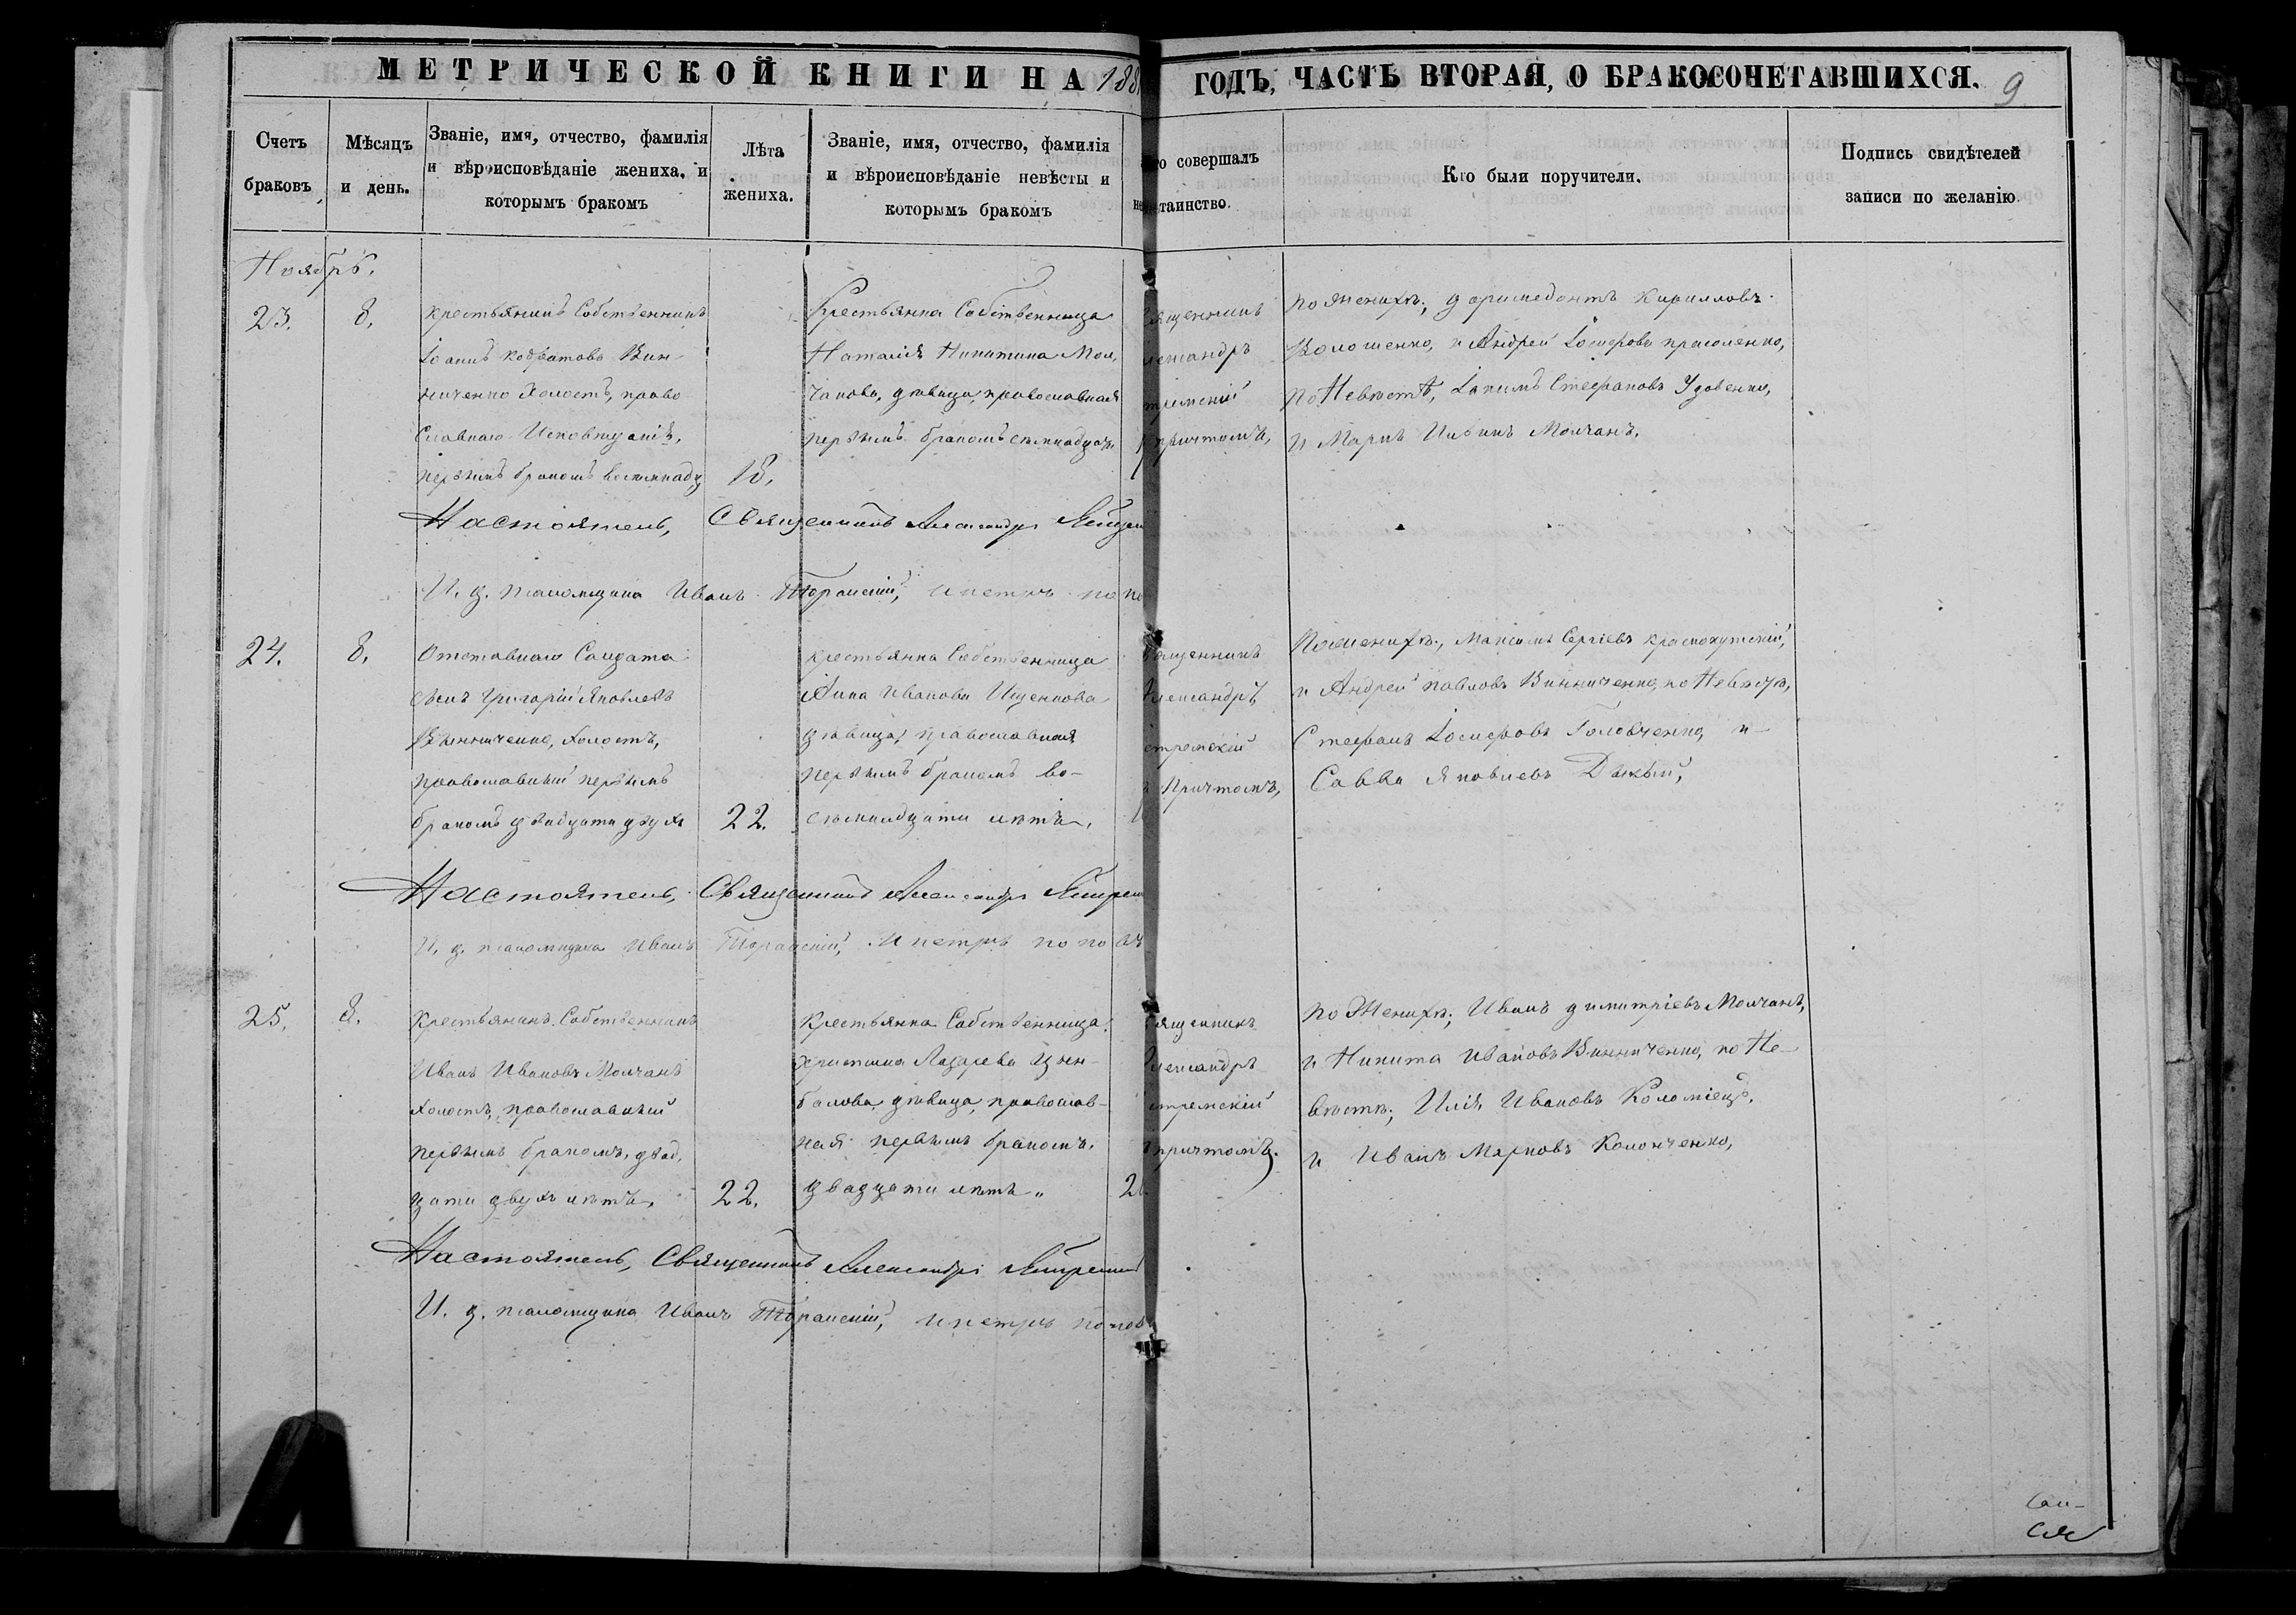 МЕТРИЧЕСКОЙ КНИГИ НА 188
ГОДЪ, ЧАСТЬ ВТОРАЯ, О БРАКОСОЧЕТАВШИХСЯ. 9
Счетъ браковъ
Мѣсяцъ и день.
Званіе, имя, отчество, фамилія
и вѣроисповѣданіе жениха, и
которымъ бракомъ
Лѣта
жениха.
Званіе, имя, отчество, фамилія
и вѣроисповѣданіе невѣсты и
которымъ бракомъ
совершалъ
таинство.
Кто были поручители.
Подпись свидѣтелей
записи по желанію.
Ноябрь.
23.
8.
крестьянинъ Собственникъ
Іоаннъ Кодратовъ Вин-
ниченко Холостъ, право
славнаго Исповѣданія,
первымъ бракомъ восемнадц
18.
Крестьянка Собственница
Наталія Никитина Мол,
чанова, дѣвица, православная
первымъ бракомъ семнадцати
священникъ
лександръ
тремскій
причтомъ,
по женихѣ; Доримедонтъ Кирилловъ
Волошенко, и Андрей Іосифовъ
по Невѣстѣ, Іакимъ Стефановъ Удовенко,
и Марко Ивановъ Молчанъ.
Настоятель, Священникъ Александръ
И. д. псаломщика Иванъ и Петръ Попо
24.
8.
Отставнаго Солдата
сынъ Григорій Яковлевъ
Винниченко, Холостъ,
православный первымъ
бракомъ двадцати двухъ
22.
крестьянка Собственница
Анна Иванова Ищенкова
дѣвица, православная
первымъ бракомъ во-
семнадцати лѣтъ,
священникъ
Александръ
стремскій
Причтомъ,
По женихѣ, Максимъ Сергіевъ Краснокутскій,
и Андрей Павловъ Винниченко, по Невѣстѣ,
Стефанъ Іосифовъ Головченко, и
Савва Яковлевъ Дикій,
Настоятель, Священникъ Александръ
И. д. псаломщика Иванъ и Петръ Поповъ
25.
8.
Крестьянинъ Собственникъ
Иванъ Ивановъ Молчанъ
холостъ, православный
первымъ бракомъ, двад,
цати двухъ лѣтъ,
22.
Крестьянка Собственница,
Христина Лазарева Цын-
балова, дѣвица, православ-
ная первымъ бракомъ,
двадцати лѣтъ „
2
священникъ
Александръ
стремскій
причтомъ.
по Женихѣ; Иванъ Димитріевъ Молчанъ,
и Никита Ивановъ Винниченко, по Не-
вѣстѣ; Илія Ивановъ Коломіецъ,
и Иванъ Марковъ
Настоятель, Священникъ Александръ
И. д. псаломщика Иванъ и Петръ Попов